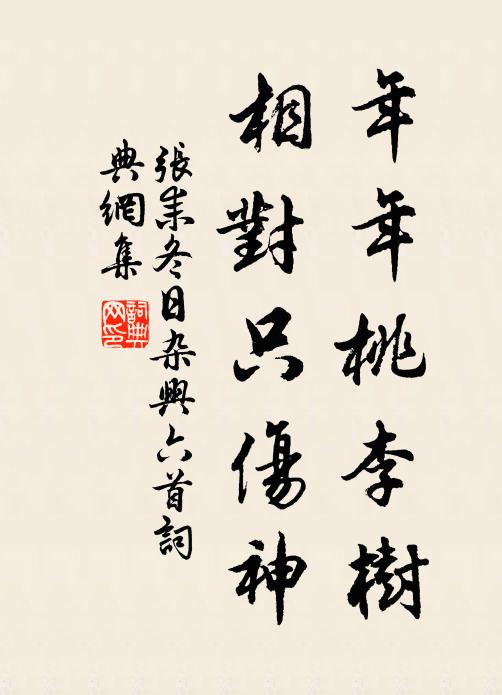 年年桃李樹
相對只傷神
張耒冬日杂興六首詞
典網集
詞典
网印